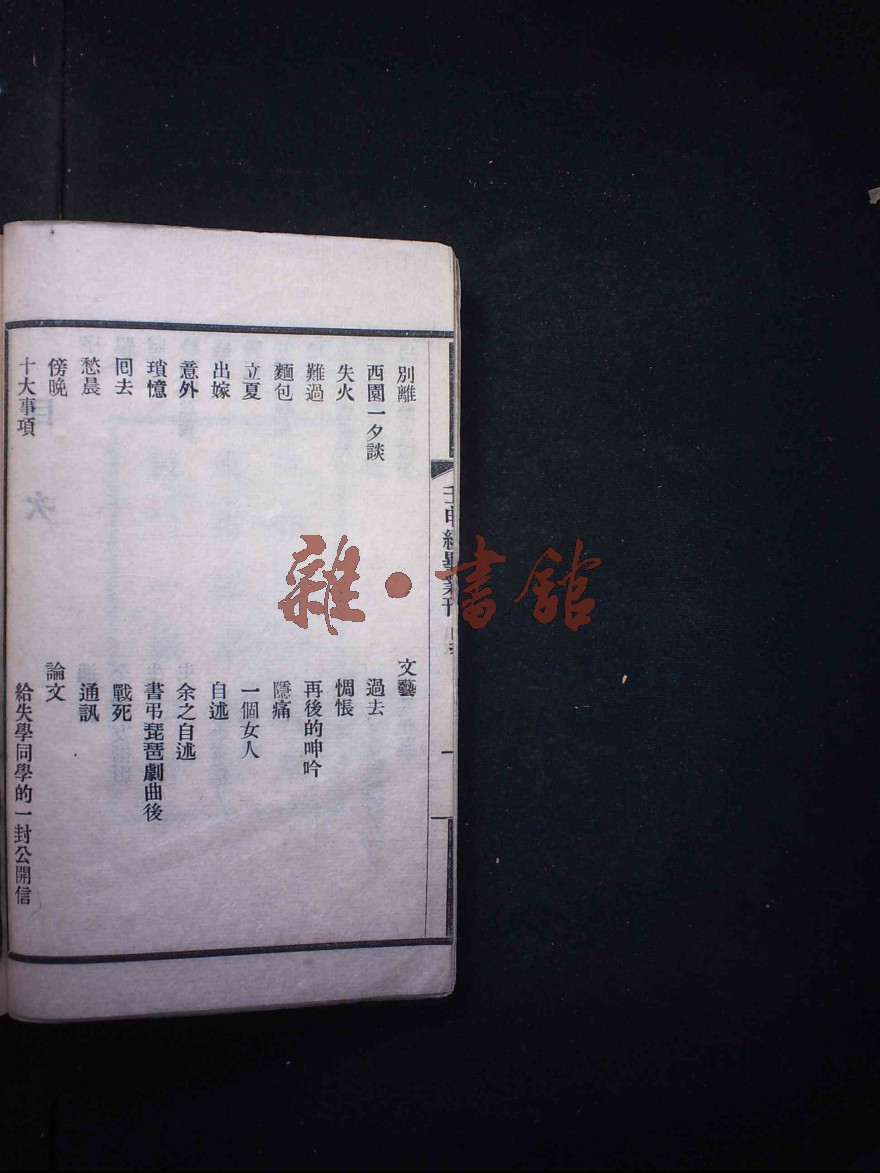 別離
西園一夕談
失火
難過
麵包
立夏
出嫁
意外
瑣憶
囘去
愁晨
傍晚
十大事項
文藝
過去
惆悵
再後的呻吟
隱痛
一個女人
自述
余之自述
書弔琵琶劇曲後
戰死
通訊
論文
給失學同學的一封公開信
壬申級畢業刊
一
雜·書館